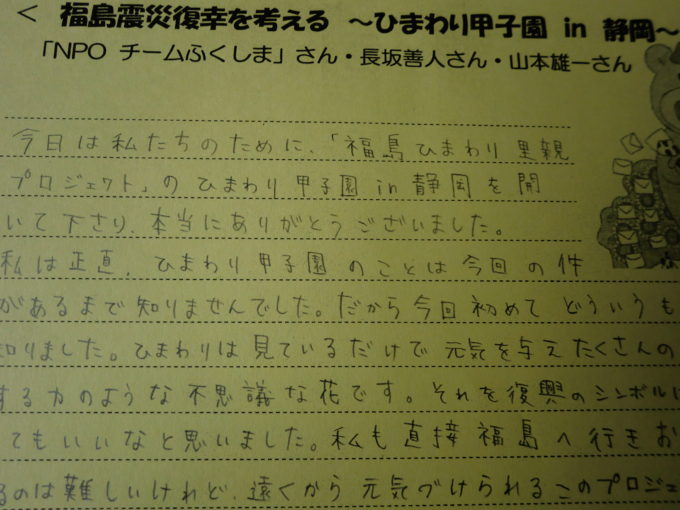 < 福島震災復幸を考える ～ひまわり甲子園 in 静岡～
「NPO チームふくしま」さん・長坂善人さん・山本雄一さん
今日は私たちのために、「福島ひまわり里親
プロジェクト」のひまわり甲子園in静岡を開
いて下さり、本当にありがとうございました。
私は正直、ひまわり甲子園のことは今回の件
があるまで知りませんでした。だから今回初めてどういうも
知りました。ひまわりは見ているだけで元気を与えたくさんの
する力のような不思議な花です。それを復興のシンボルに
てもいいなと思いました。私も直接福島へ行きお
るのは難しいけれど、遠くから元気づけられるこのプロジェ